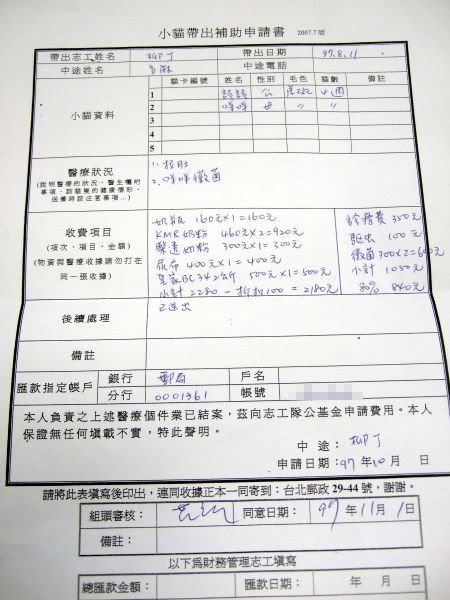 小貓帶出補助申請書 2007.7版
帶出志工姓名 柳丁 帶出日期 97.8.11
中途姓名 多麻 中途電話
小貓資料 貓卡編號 姓名 性別 毛色 貓齡 備註
1 談談 公 虎斑 4週
2 咩咩 母 〃 〃
3
4
5
醫療狀況
(說明醫療的狀況、醫生囑咐事項、該貓隻的健康情形、送養時該注意事項…)
1. 拉肚
2. 咩咩黴菌
收費項目
(項次、項目、金額)
(物資與醫療收據請勿打在同一張收據)
奶瓶 160元x1=160元
KMR奶粉 460元x2=920元
樂透奶粉 300元x1=300元
尿布 400元x1=400元
皇家BC342公斤 500元x1=500元
小計 2280 - 折扣100 = 2180元
診療費 350元
驅虫 100元
黴菌300x2=600元
小計 1050元
80% 840元
後續處理 已送出
備註
匯款指定帳戶 銀行 郵局 戶名
分行 0001361 帳號
本人負責之上述醫療個件業已結案，茲向志工隊公基金申請費用。本人
保證無任何填載不實，特此聲明。
中途：柳丁
申請日期：97年10月 日
請將此表填寫後印出，連同收據正本一同寄到：台北郵政29-44號，謝謝。
組頭審核： 同意日期：97年11月1日
備註：
以下為財務管理志工填寫
總匯款金額： 匯款日期： 年 月 日